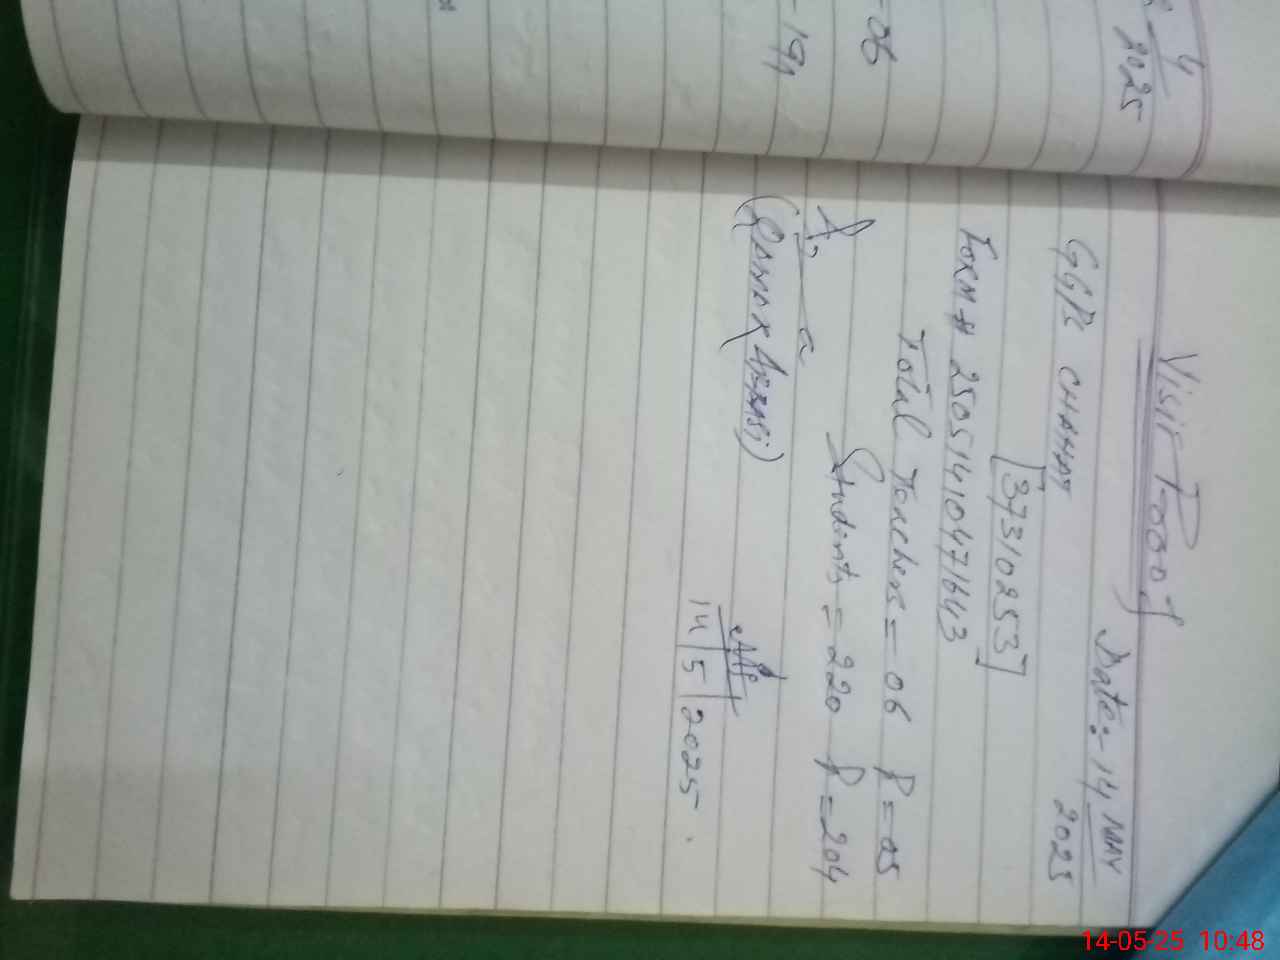 4
2025
-06
-194
Visit Proof
Date:- 14 MAY
2025
GGPS CHAHAT
[37310253]
Form # 25051410471643
Total Teachers = 06 P = 05
Students = 220 P = 204
(QAMAR ABBASI)
14/5/2025.
14-05-25 10:48